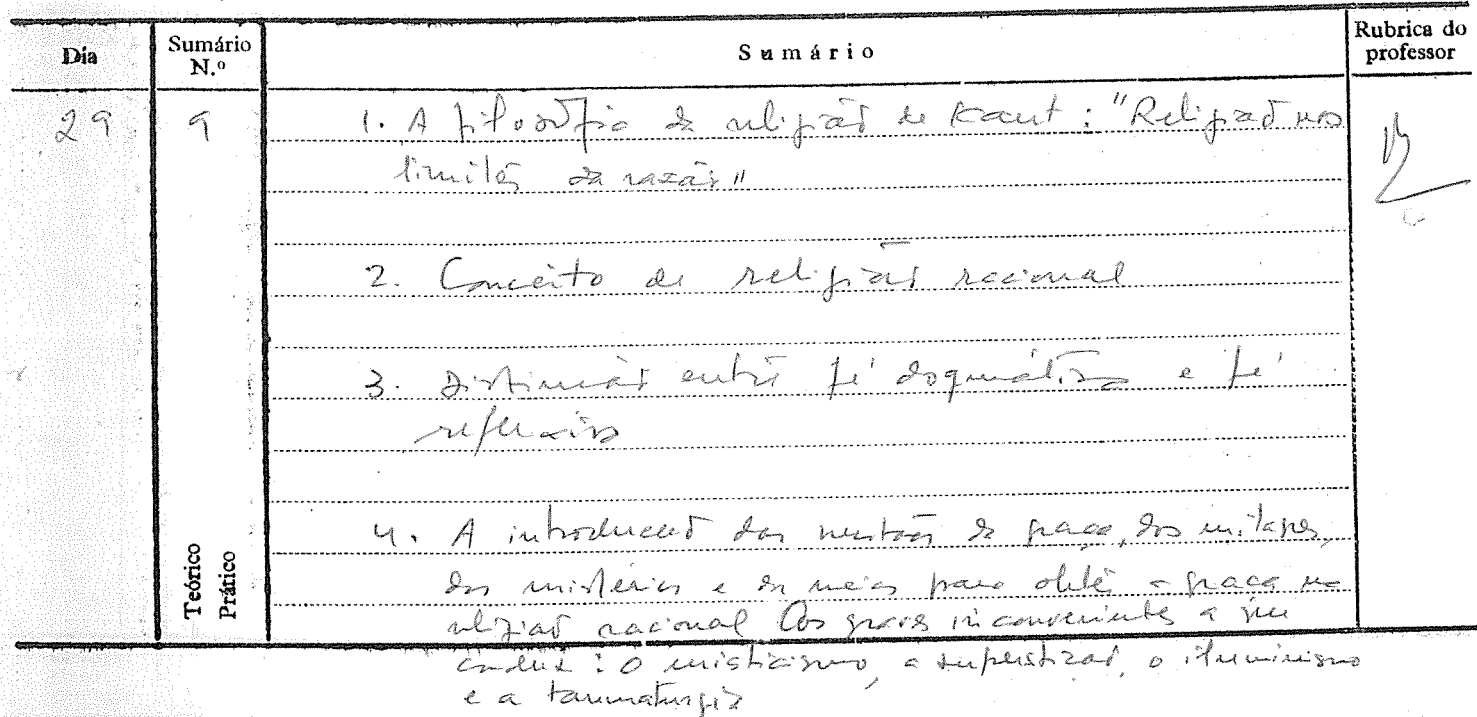 Dia
Sumário N.º
Sumário
Rubrica do professor
29
9
1. A filosofia da religião de Kant : "Religião nos
limites da razão"
2. Conceito de religião racional
3. Distinção entre fé dogmática e fé
reflexiva
4. A introdução das da graça, dos milagres,
dos mistérios e dos meios para obter a graça na
religião racional os graves inconvenientes a que
conduz : o misticismo, a superstizão, o iluminismo
e a taumaturgia
Teórico
Prático